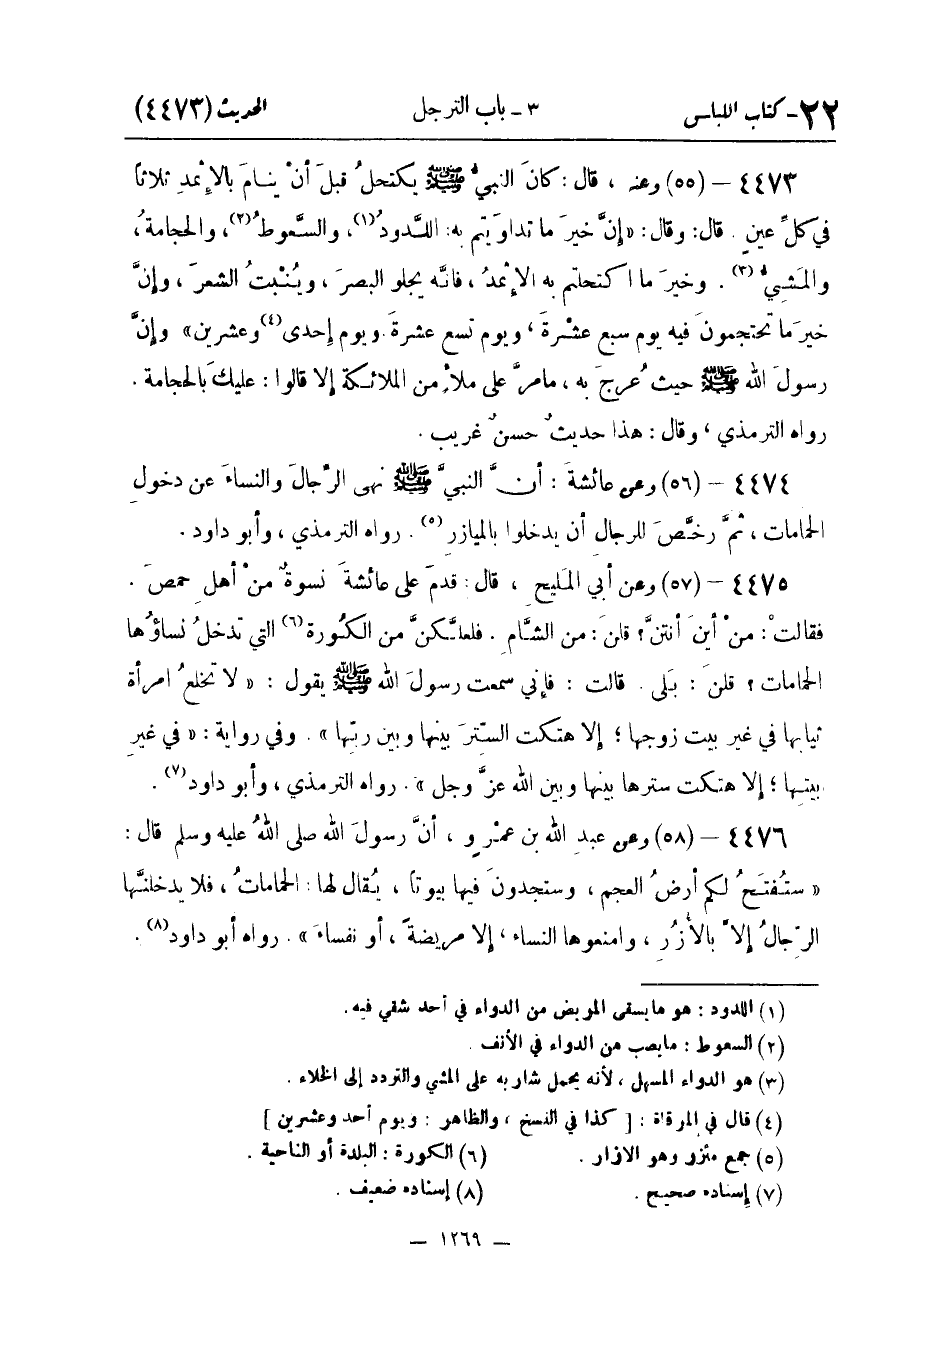 ٢٢ـ كتاب اللباس ٣ ـ باب الترجل الحديث (٤٤٧٣)
٤٤٧٣ – (٥٥) وعنه ، قال : كانَ النبيُّ ﷺ يكتحلُ قبلَ أنْ ينامَ بالإثمدِ ثلاثاً
في كلِّ عينٍ . قال: وقال: «إنَّ خيرَ ما تداوَيتم به: اللَّدودُ(١)، والسَّعوطُ(٢)، والحجامةُ،
والمَشِيُّ(٣) . وخيرَ ما اكتحلتم به الإثمدُ ، فانَّه يجلو البصرَ ، ويُنْبتُ الشعرَ ، وإنَّ
خيرَ ما تحتجمونَ فيه يوم سبع عشْرةَ ، ويوم تسع عشرةَ. ويوم إحدى(٤) وعشرين» وإنَّ
رسولَ الله ﷺ حيثُ عرجَ به ، مامرَّ على ملأٍ من الملائكة إلا قالوا : عليكَ بالحجامة .
رواه الترمذي ، وقال : هذا حديثٌ حسنٌ غريب .
٤٤٧٤ – (٥٦) وعن عائشةَ : أنَّ النبيَّ ﷺ نهى الرِّجالَ والنساءَ عن دخولِ
الحمامات ، ثمَّ رخَّصَ للرجالِ أن يدخلوا بالميازر(٥) . رواه الترمذي ، وأبو داود .
٤٤٧٥ – (٥٧) وعن أبي المَليحِ ، قال : قدمَ على عائشةَ نسوةٌ منْ أهلِ حمصَ .
فقالتْ : منْ أينَ أنتنَّ ؟ قلنَ : من الشَّامِ . فلعلَّكنَّ من الكُورة(٦) التي تدخلُ نساؤُها
الحمامات ؟ قلنَ : بَلى . قالت : فإني سمعت رسولَ الله ﷺ يقول : « لا تخلعُ امرأة
ثيابها في غير بيت زوجها ؛ إلا هتكت السِّترَ بينها وبين ربِّها » . وفي رواية : « في غيرِ
بيتها ؛ إلا هتكت سترها بينها وبين الله عزَّ وجل » . رواه الترمذي ، وأبو داود(٧) .
٤٤٧٦ – (٥٨) وعن عبدِ الله بن عمْرٍو ، أنَّ رسولَ الله صلى اللهُ عليه وسلم قال :
« ستُفتَحُ لكم أرضُ العجم ، وستجدونَ فيها بيوتاً ، يُقال لها : الحماماتُ ، فلا يدخلنَّها
الرِّجالُ إلاَّ بالأزُرِ ، وامنعوها النساء ، إلا مريضةً ، أو نفساءَ » . رواه أبو داود(٨) .
(١) اللدود : هو مايسقى المريض من الدواء في أحد شقي فيه.
(٢) السعوط : مايصب من الدواء في الأنف .
(٣) هو الدواء المسهل ، لأنه يحمل شاربه على المشي والتردد إلى الخلاء .
(٤) قال في المرقاة : [ كذا في النسخ ، والظاهر : ويوم أحد وعشرين ]
(٥) جمع مئزر وهو الازار . (٦) الكورة : البلدة أو الناحية .
(٧) إسناده صحيح . (٨) إسناده ضعيف .
– ١٢٦٩ –